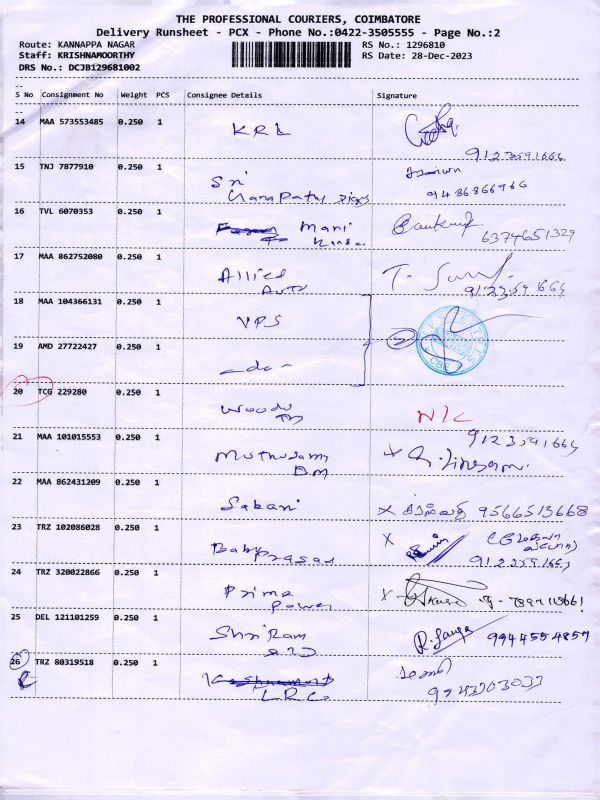 THE PROFESSIONAL COURIERS, COIMBATORE
Delivery Runsheet - PCX - Phone No.:0422-3505555 - Page No.:2
Route: KANNAPPA NAGAR RS No.: 1296810
Staff: KRISHNAMOORTHY RS Date: 28-Dec-2023
DRS No.: DCJB129681002
S No Consignment No Weight PCS Consignee Details Signature
14 MAA 573553485 0.250 1 KRL
9123591666
15 TNJ 7877910 0.250 1 Sri
9486866766
16 TVL 6070353 0.250 1 Mani
6374651329
17 MAA 862752080 0.250 1 Allied
Auto
18 MAA 104366131 0.250 1 VPS
19 AMD 27722427 0.250 1 -do-
20 TCG 229280 0.250 1 N/C
21 MAA 101015553 0.250 1 Muthusamy
D.M
22 MAA 862431209 0.250 1 Sabari 9566513668
23 TRZ 102086028 0.250 1 Baby
Prasad
24 TRZ 320022866 0.250 1 Prime
Power
25 DEL 121101259 0.250 1 Shri Ram 9944554857
26 TRZ 80319518 0.250 1
LRC 9743303033